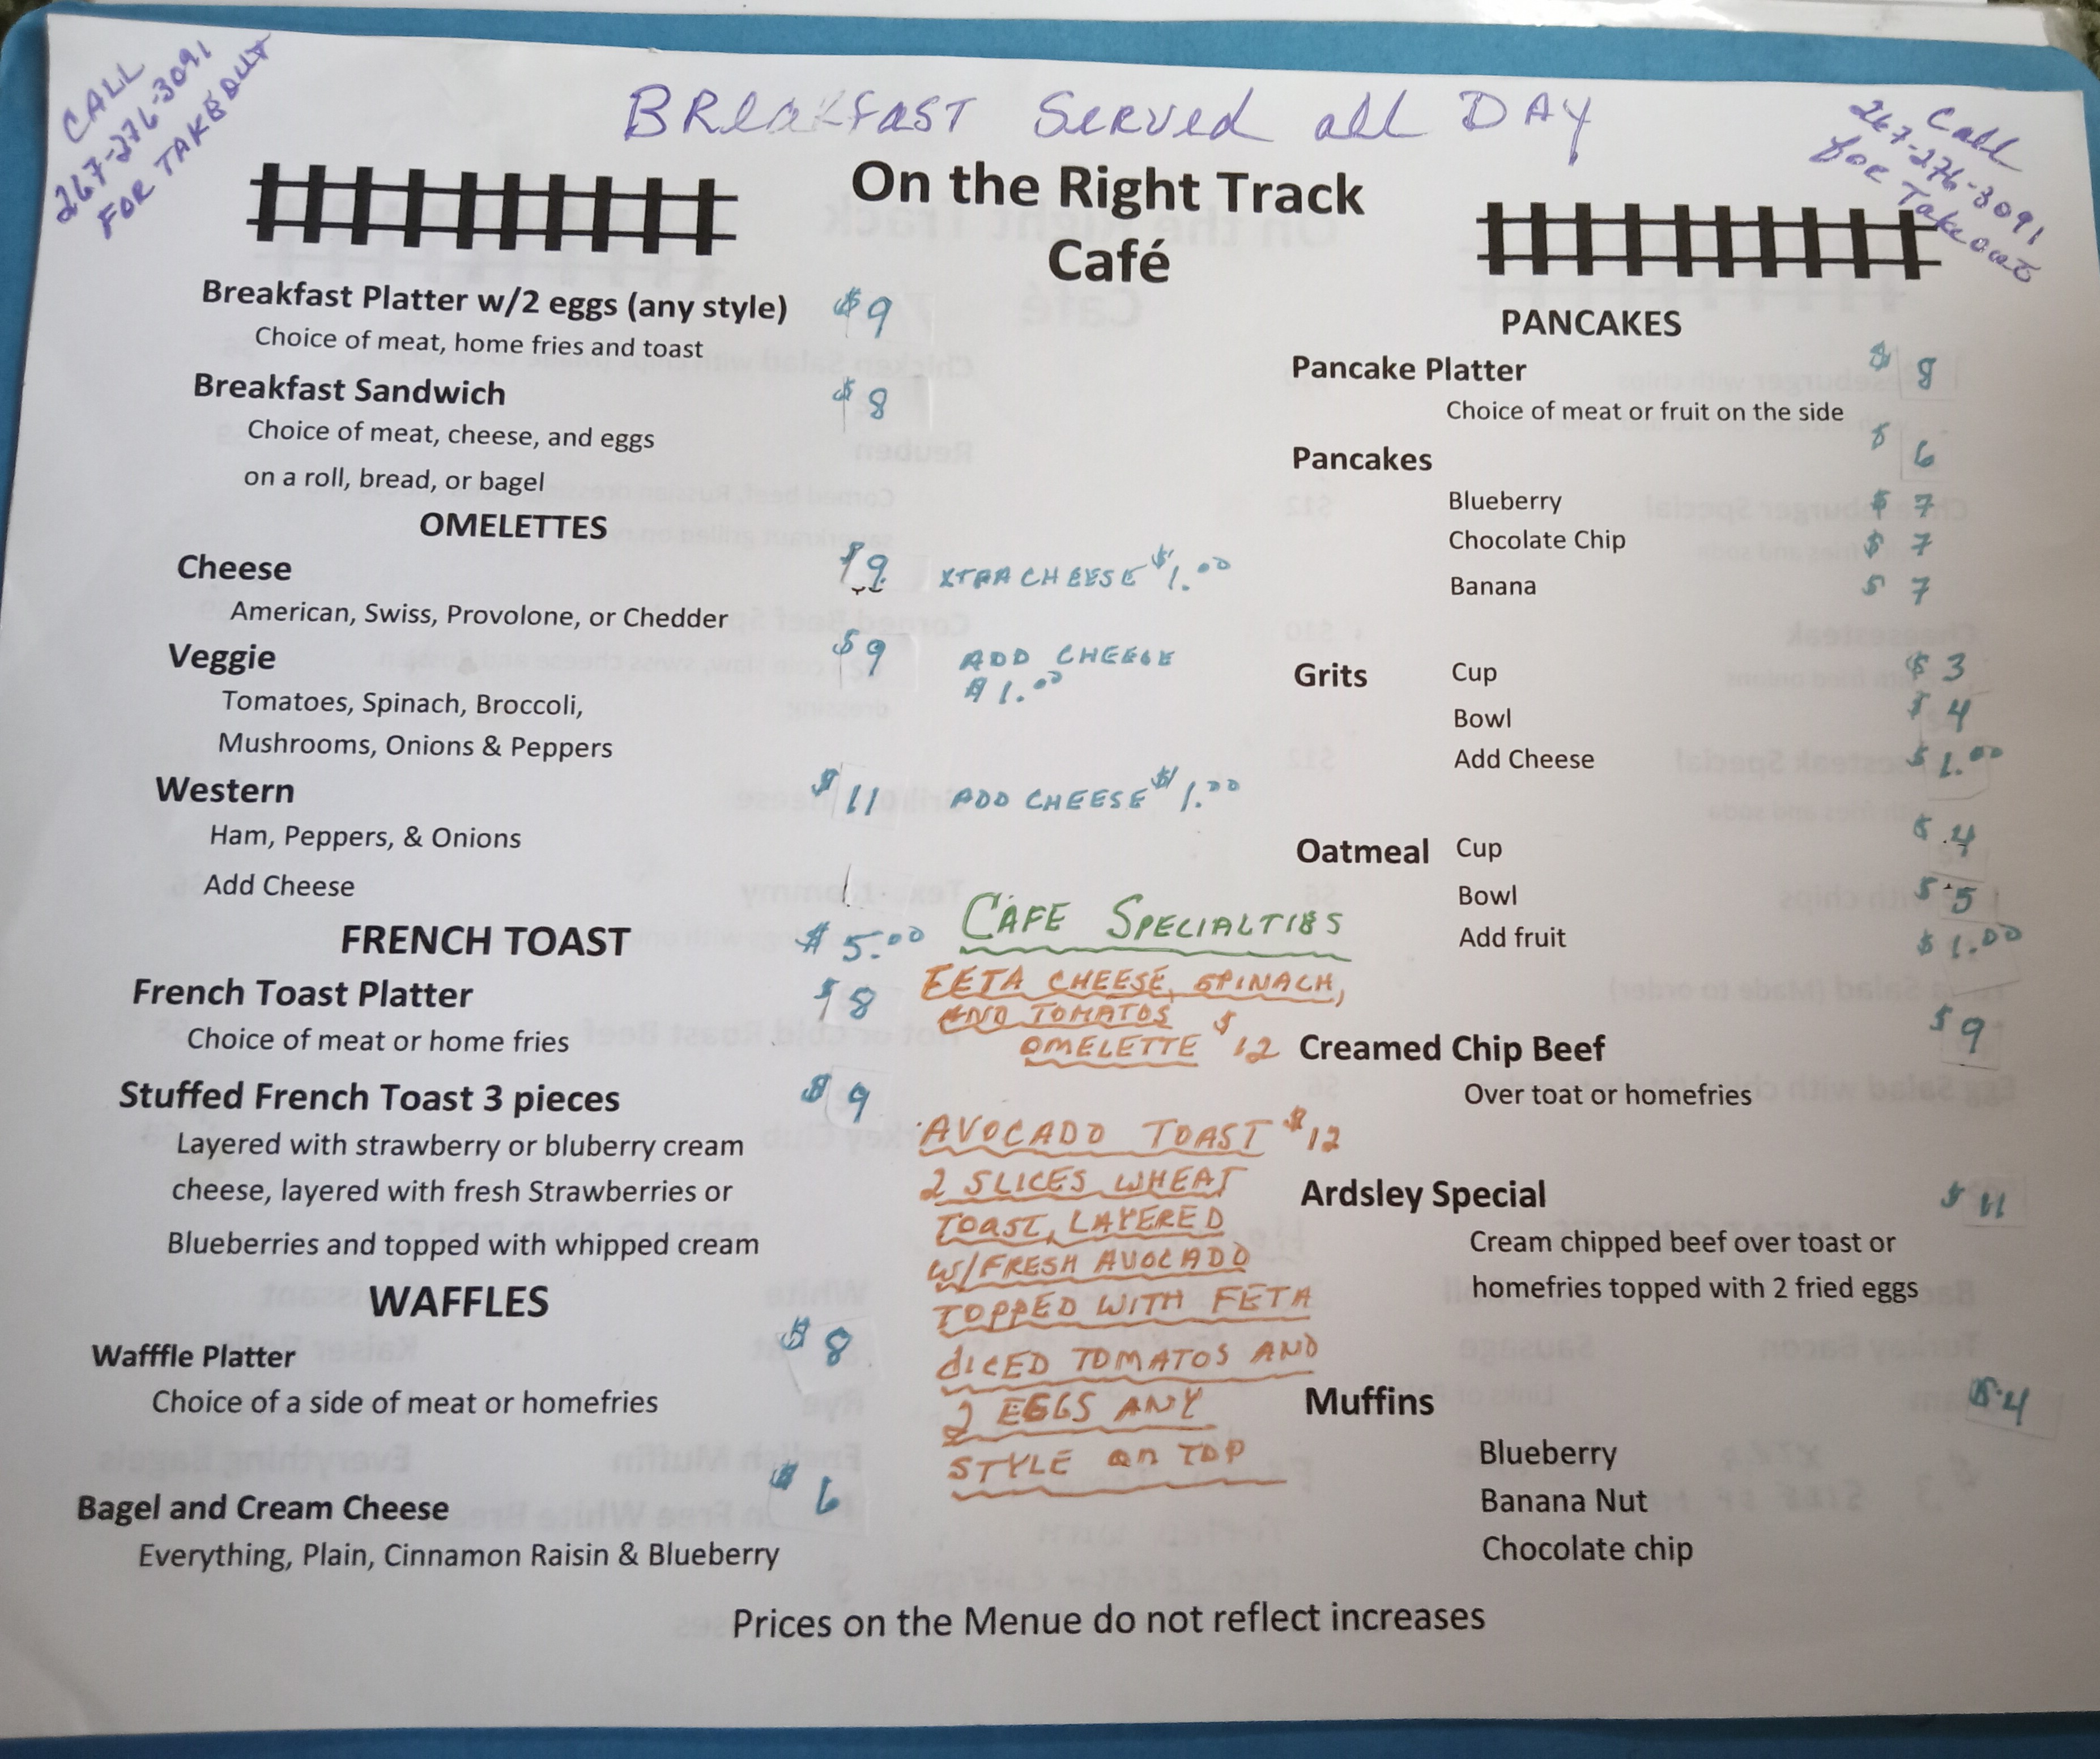 CALL
267-276-3091
FOR TAKEOUT
BReakfast Served all DAY
Call
267-276-3091
for Takeout
On the Right Track
Café
Breakfast Platter w/2 eggs (any style) $9
Choice of meat, home fries and toast
Breakfast Sandwich $8
Choice of meat, cheese, and eggs
on a roll, bread, or bagel
OMELETTES
Cheese $9 XTRA CHEESE $1.00
American, Swiss, Provolone, or Chedder
Veggie $9 ADD CHEESE
$1.00
Tomatoes, Spinach, Broccoli,
Mushrooms, Onions & Peppers
Western $11 ADD CHEESE $1.00
Ham, Peppers, & Onions
Add Cheese
FRENCH TOAST $5.00
French Toast Platter $8
Choice of meat or home fries
Stuffed French Toast 3 pieces $9
Layered with strawberry or bluberry cream
cheese, layered with fresh Strawberries or
Blueberries and topped with whipped cream
WAFFLES
Wafffle Platter $8
Choice of a side of meat or homefries
Bagel and Cream Cheese $6
Everything, Plain, Cinnamon Raisin & Blueberry
CAFE SPECIALTIES
FETA CHEESE, SPINACH,
AND TOMATOS
OMELETTE $12
AVOCADO TOAST $12
2 SLICES WHEAT
TOAST, LAYERED
W/FRESH AVOCADO
TOPPED WITH FETA
dICED TOMATOS AND
2 EGGS ANY
STYLE on TOP
PANCAKES
Pancake Platter $8
Choice of meat or fruit on the side
Pancakes $6
Blueberry $7
Chocolate Chip $7
Banana $7
Grits Cup $3
Bowl $4
Add Cheese $1.00
Oatmeal Cup $4
Bowl $5
Add fruit $1.00
Creamed Chip Beef $9
Over toat or homefries
Ardsley Special $11
Cream chipped beef over toast or
homefries topped with 2 fried eggs
Muffins $4
Blueberry
Banana Nut
Chocolate chip
Prices on the Menue do not reflect increases